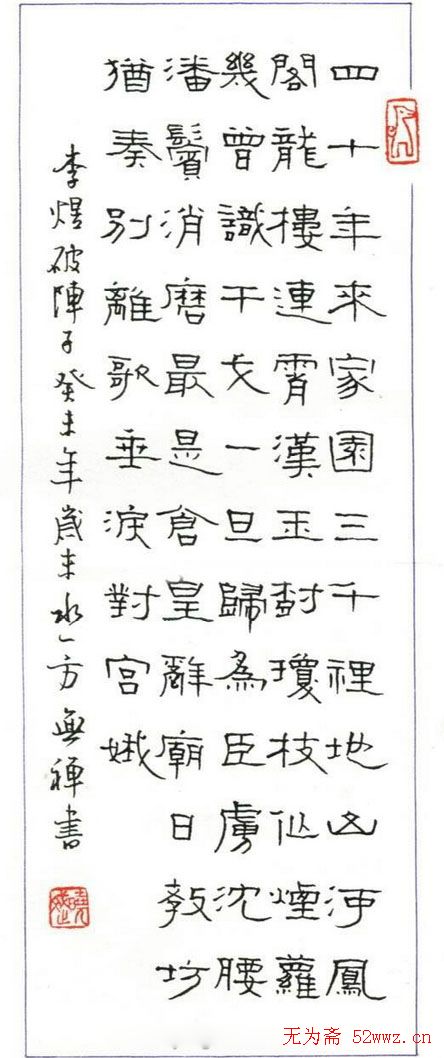 四十年來家園三千裡地山河鳳
閣龍樓連霄漢玉樹瓊枝作煙蘿
幾曾識干戈一旦歸為臣虜沈腰
潘鬢消磨最是倉皇辭廟日教坊
猶奏別離歌垂淚對宮娥
李煜破陣子癸未年歲末水一方無禪書
无为斋 52wwz.cn